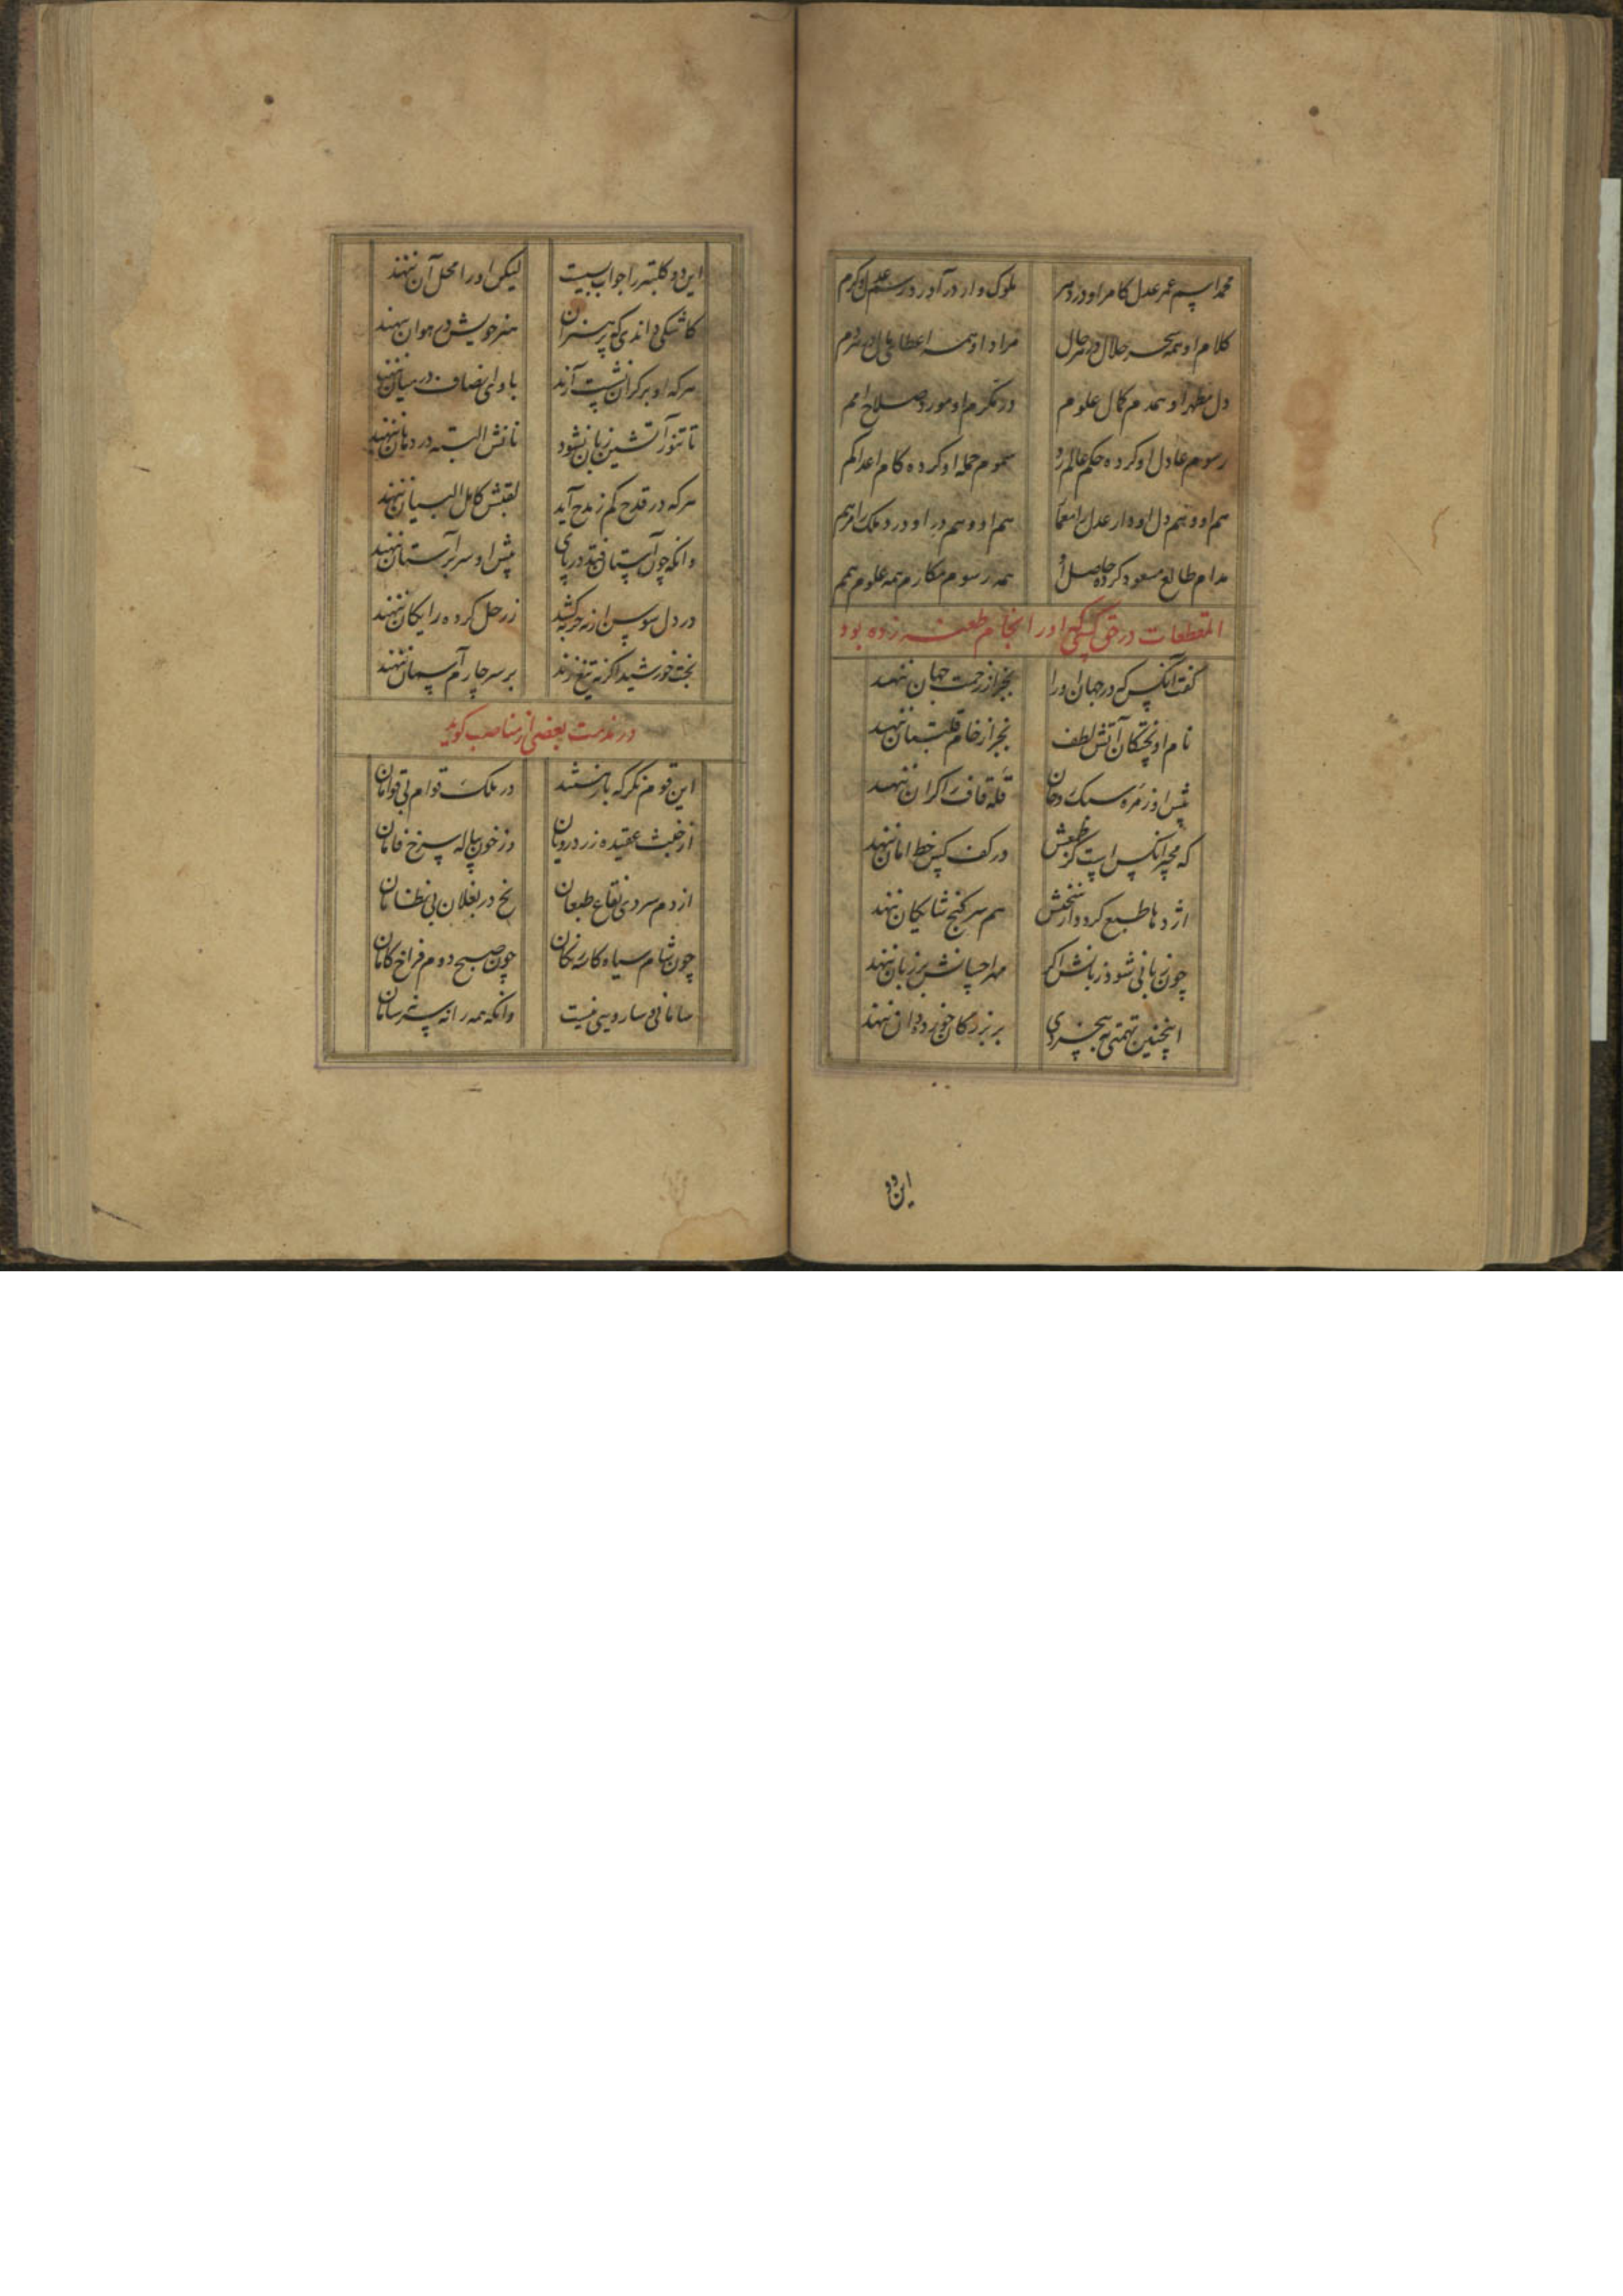 محمد اسم عمر عدل کامراو در دهر ملوک وار در آورد رسم عدل و کرم
کلام او همه سحر حلال در هر حال مراد او همه اعطای مال در هر دم
دل مطهر او همدم کمال علوم در مکرم او مورد صلاح امم
رسوم عادل او کرده حکم عالم رد سموم حمله او کرده کام اعدا کم
هم او و هم دل او دار عدل را معمار هم او و هم در او درد ملک را مرهم
مدام طالع مسعود کرده حاصل او همه رسوم مکارم همه علوم همم
المقطعات در حق کسی که او را انجام طعنه زده بود
گفت آنکس که در جهان او را بجز از رحمت جهان ننهند
نام او پختگان آتش لطف بجز از خام قلتبان ننهند
پیش او زمره سبک روحان قله قاف را کران ننهند
که مجیر آنکس است کز طعنش در کف کس خط امان ننهند
اژدها طبع کرد و از سخنش هم سر گنج شایگان ننهند
چون زبانی شود زبانش اگر مهر احسانش بر زبان ننهند
اینچنین تهمتی ز بیخردی بر بزرگان خرده دان ننهند
این دو
این دو کلبتره را جواب بسیست لیکن او را محل آن ننهند
کاشکی داندی که پر هنران هنر خویش در هوان ننهند
هر که او بر کران نشست آزند با وی انصاف در میان ننهند
تا تنور آتشین زبان نشود نانش البته در دهان ننهند
هر که در قدح کم ز مدح آید لقبش کامل البیان ننهند
وانکه چون آستان فتد در پای پیش او سر بر آستان ننهند
در دل سوسن ار نه حربه کشد زر حل کرده رایگان ننهند
تخت خورشید اگر نه تیغ زند بر سر چارم آسمان ننهند
در مذمت بعضی از مناصب گوید
این قوم نگر که باز هستند در ملک قوام بی قوامان
از خبث عقیده زرد رویان وز خون پیاله سرخ فامان
از دم سردی فقاع طبعان یخ در بغلان بی نظامان
چون شام سیاه کاسه رنگان چون صبح دوم فراخ کامان
سامانی و سارویی نیست وانگه همه رانه سر نه سامان